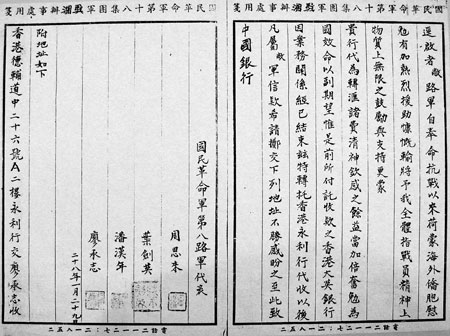 國民革命軍第十八集團軍駐湘辦事處用箋
逕啟者敝路軍自奉命抗戰以來荷蒙海外僑胞慰
勉有加熱烈援助慷慨輸將予我全體指戰員精神上
物質上無限之鼓勵與支持更蒙
貴行代為轉滙諸費清神欽感之餘益當加倍奮勉為
國效命以副期望惟是前所付託收款之香港大英銀行
因業務關係經已結束茲特轉托香港永利行代收以後
凡屬敝軍信款希請擲交下列地址不勝感盼之至此致
中國銀行
電話二一一二七:二一八五二
國民革命軍第十八集團軍駐湘辦事處用箋
國民革命軍第八路軍代表
周恩來
葉劍英
潘漢年
廖承志
二十八年一月二十九日
附地址如下
香港德輔道中二十六號A二樓永利行交廖承志收
電話二一一二七:二一八五二